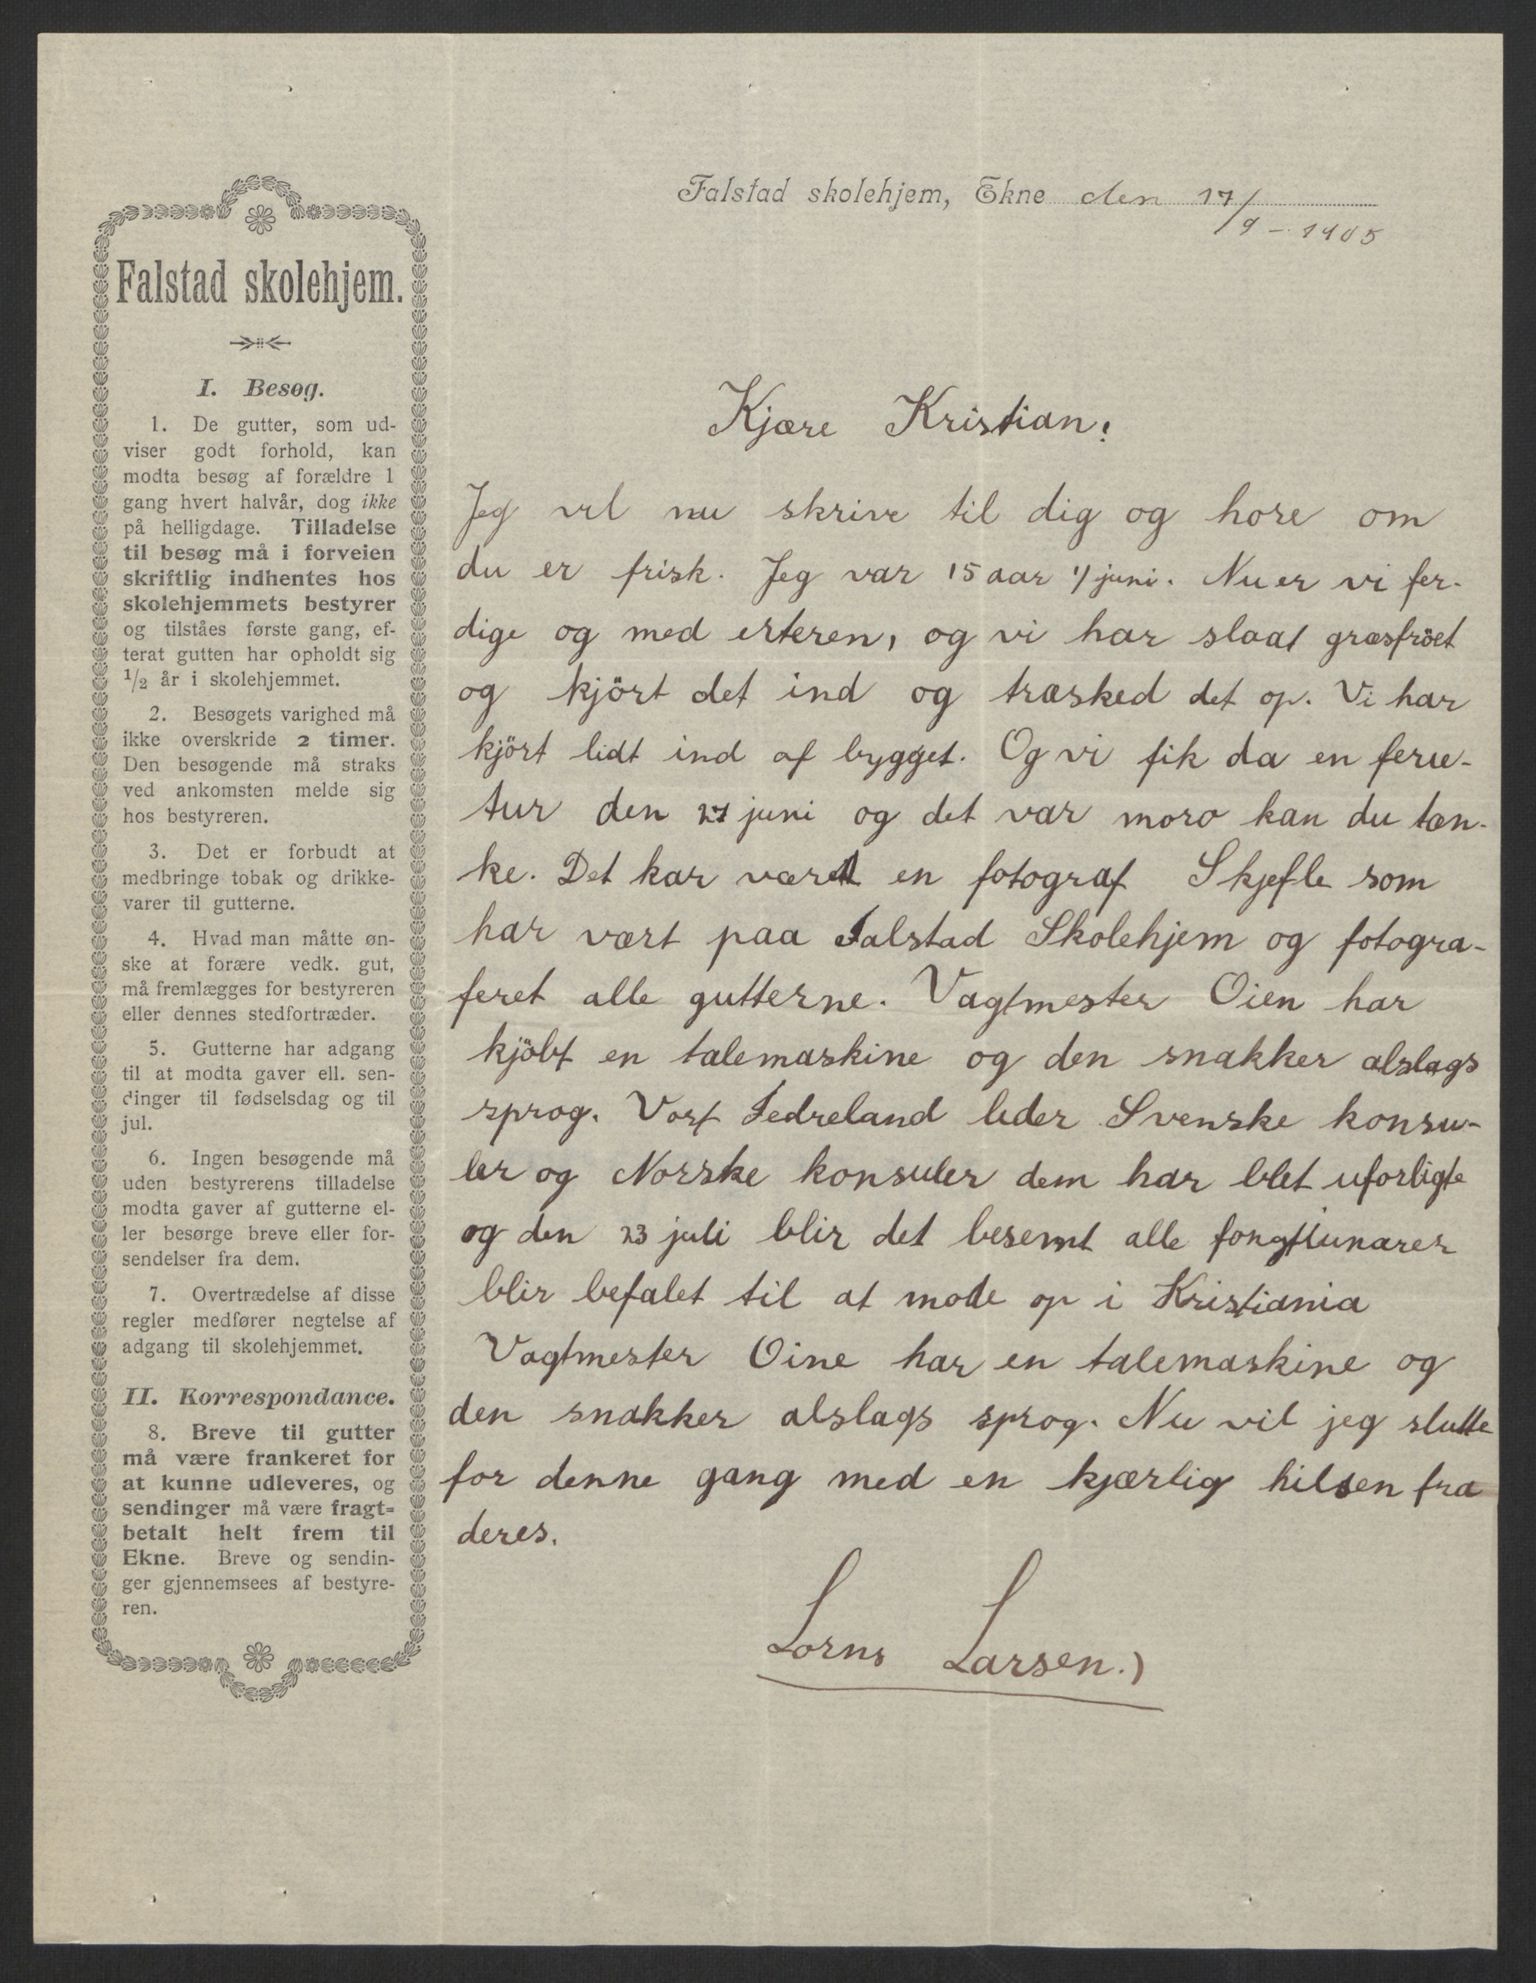 Falstad skolehjem.
I. Besøg.
1. De gutter, som ud-
viser godt forhold, kan
modta besøg af forældre 1
gang hvert halvår, dog ikke
på helligdage. Tilladelse
til besøg må i forveien
skriftlig indhentes hos
skolehjemmets bestyrer
og tilståes første gang, ef-
terat gutten har opholdt sig
1/2 år i skolehjemmet.
2. Besøgets varighed må
ikke overskride 2 timer.
Den besøgende må straks
ved ankomsten melde sig
hos bestyreren.
3. Det er forbudt at
medbringe tobak og drikke-
varer til gutterne.
4. Hvad man måtte øn-
ske at forære vedk. gut,
må fremlægges for bestyreren
eller dennes stedfortræder.
5. Gutterne har adgang
til at modta gaver ell. sen-
dinger til fødselsdag og til
jul.
6. Ingen besøgende må
uden bestyrerens tilladelse
modta gaver af gutterne el-
ler besørge breve eller for-
sendelser fra dem.
7. Overtrædelse af disse
regler medfører negtelse af
adgang til skolehjemmet.
II. Korrespondance.
8. Breve til gutter
må være frankeret for
at kunne udleveres, og
sendinger må være fragt-
betalt helt frem til
Ekne. Breve og sendin-
ger gjennemsees af bestyre-
ren.
Falstad skolehjem, Ekne den 17/9-1905
Kjære Kristian!
Jeg vel nu skrive til dig og hore om
du er frisk. Jeg var 15 aar 1/juni. Nu er vi fer-
dige og med erteren, og vi har slaat græsfröet
og kjört det ind og træsked det op. Vi har
kjört lidt ind af bygget. Og vi fik da en ferie-
tur den 27 juni og det var moro kan du tæn-
ke. Det har været en fotograf Skjefle som
har vært paa Falstad Skolehjem og fotogra-
feret alle gutterne. Vagtmester Oien har
kjöbt en talemaskine og den snakker alslags
sprog. Vort Fedreland leder Svenske konsu-
ler og Norske konsuler dem har blet uforligte
og den 23 juli blir det besemt alle
blir befalet til at mode op i Kristiania
Vagtmester Oine har en talemaskine og
den snakker alslags sprog. Nu vil jeg slutte
for denne gang med en kjærlig hilsen fra
deres.
Lorns Larsen.)